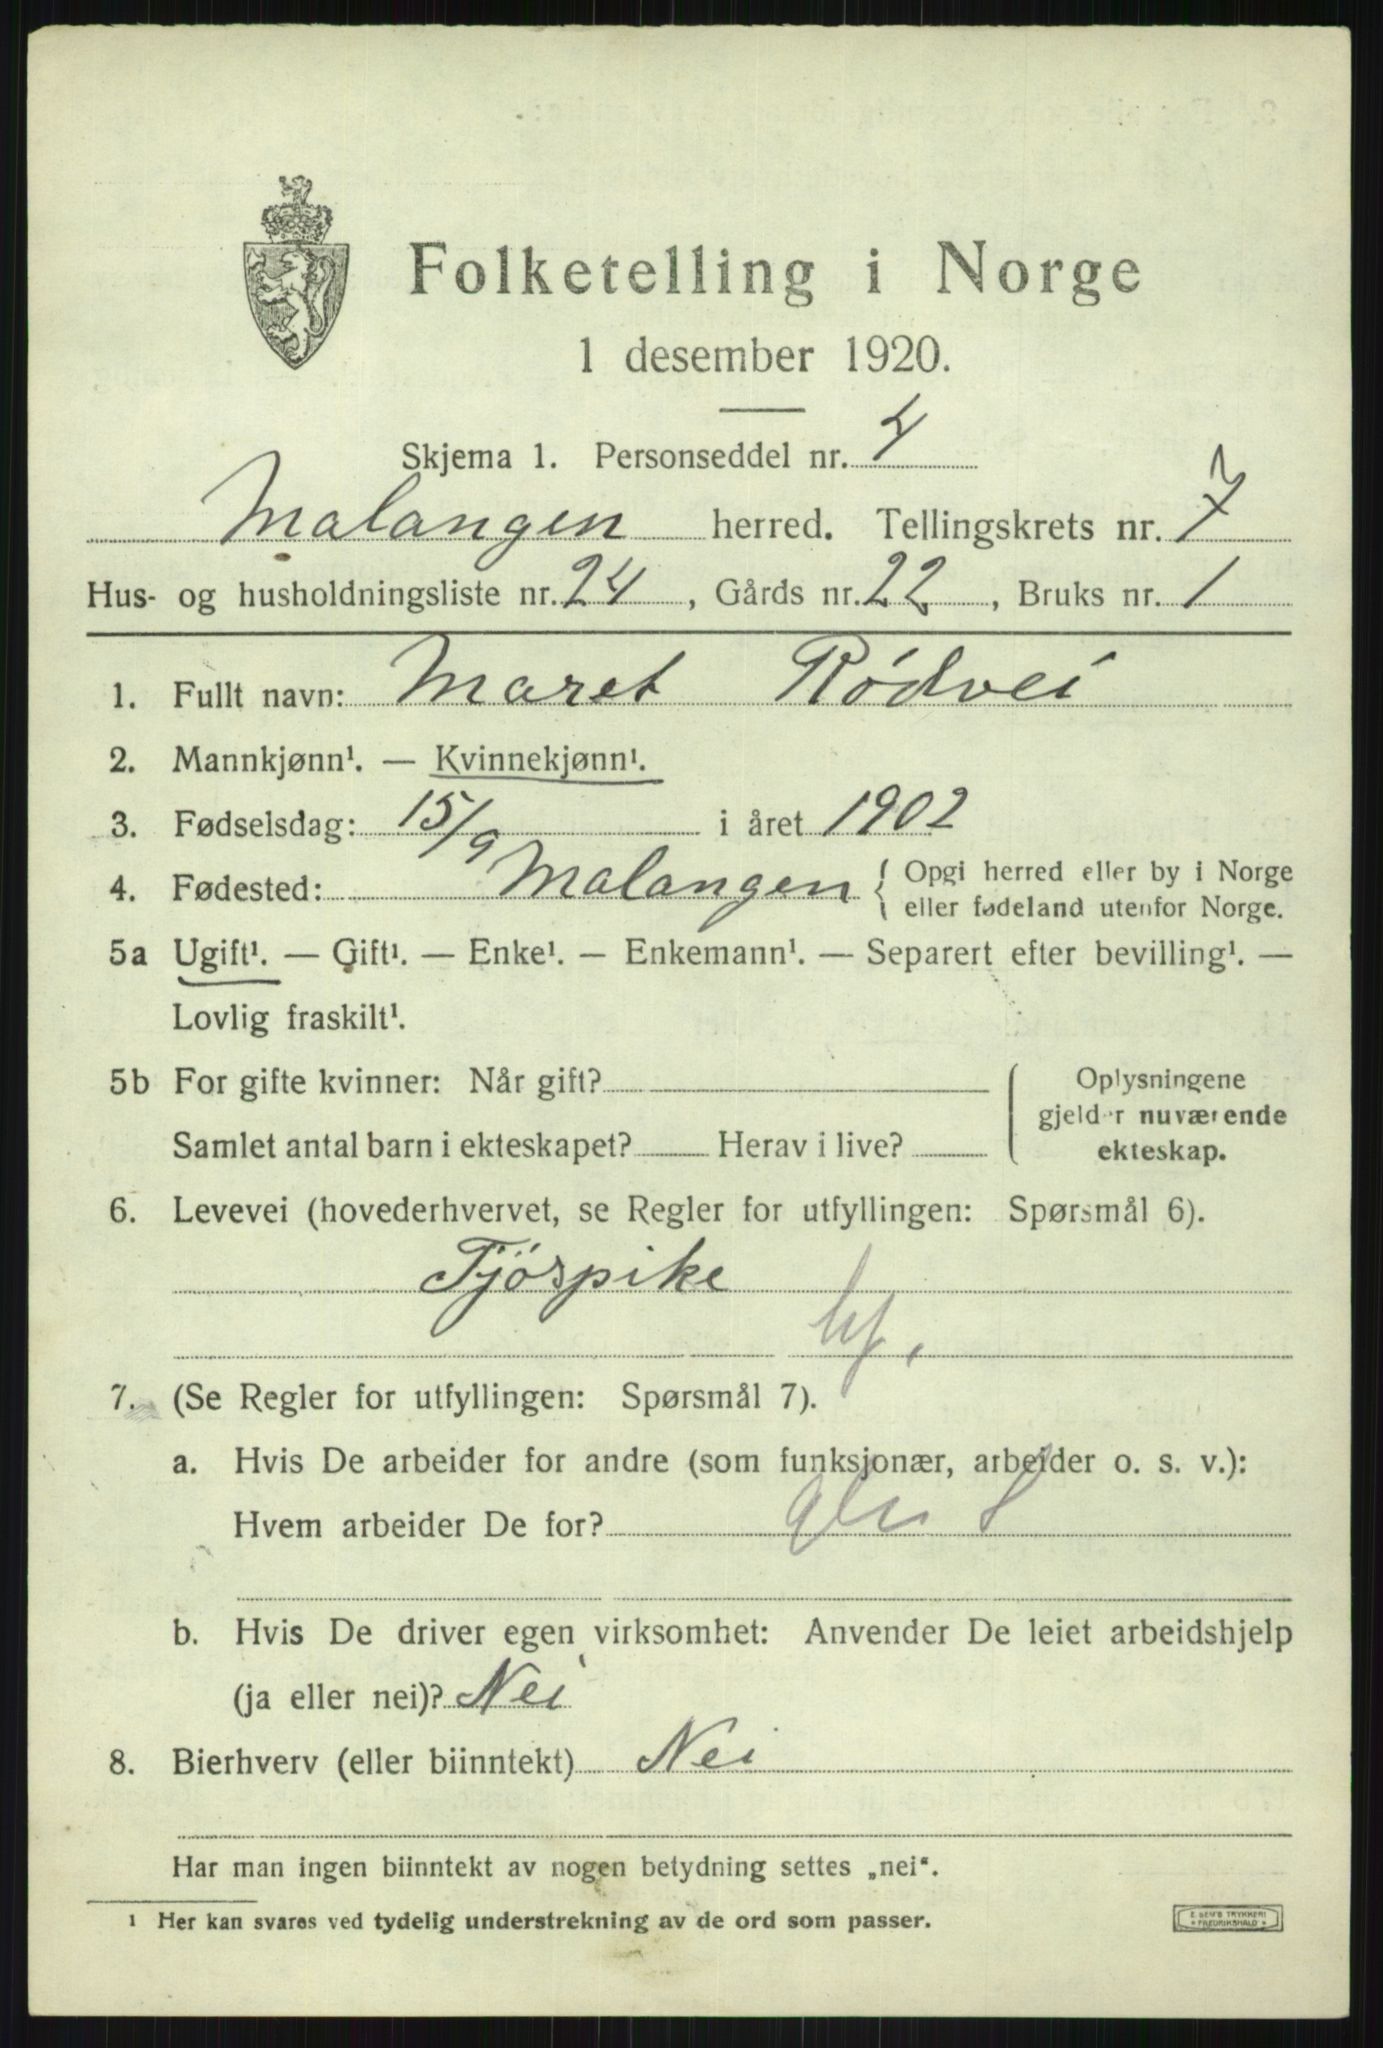 Folketelling i Norge
1 desember 1920.
Skjema 1. Personseddel nr. 4
Malangen herred. Tellingskrets nr. 7
Hus- og husholdningsliste nr. 24, Gårds nr. 22, Bruks nr. 1
1. Fullt navn: Maret Rödvei
2. Mannkjønn¹. — Kvinnekjønn¹.
3. Fødselsdag: 15/9 i året 1902
4. Fødested: Malangen { Opgi herred eller by i Norge
eller fødeland utenfor Norge.
5a Ugift¹. — Gift¹. — Enke¹. — Enkemann¹. — Separert efter bevilling¹. —
Lovlig fraskilt¹.
5b For gifte kvinner: Når gift?
Samlet antal barn i ekteskapet? Herav i live?
Oplysningene
gjelder nuværende
ekteskap.
6. Levevei (hovederhvervet, se Regler for utfyllingen: Spørsmål 6).
Tjöspike
7. (Se Regler for utfyllingen: Spørsmål 7).
a. Hvis De arbeider for andre (som funksjonær, arbeider o. s. v.):
Hvem arbeider De for?
b. Hvis De driver egen virksomhet: Anvender De leiet arbeidshjelp
(ja eller nei)? Nei
8. Bierhverv (eller biinntekt) Nei
Har man ingen biinntekt av nogen betydning settes „nei“.
¹ Her kan svares ved tydelig understrekning av de ord som passer.
E. SEM'S TRYKKERI
* FREDRIKSHALD *